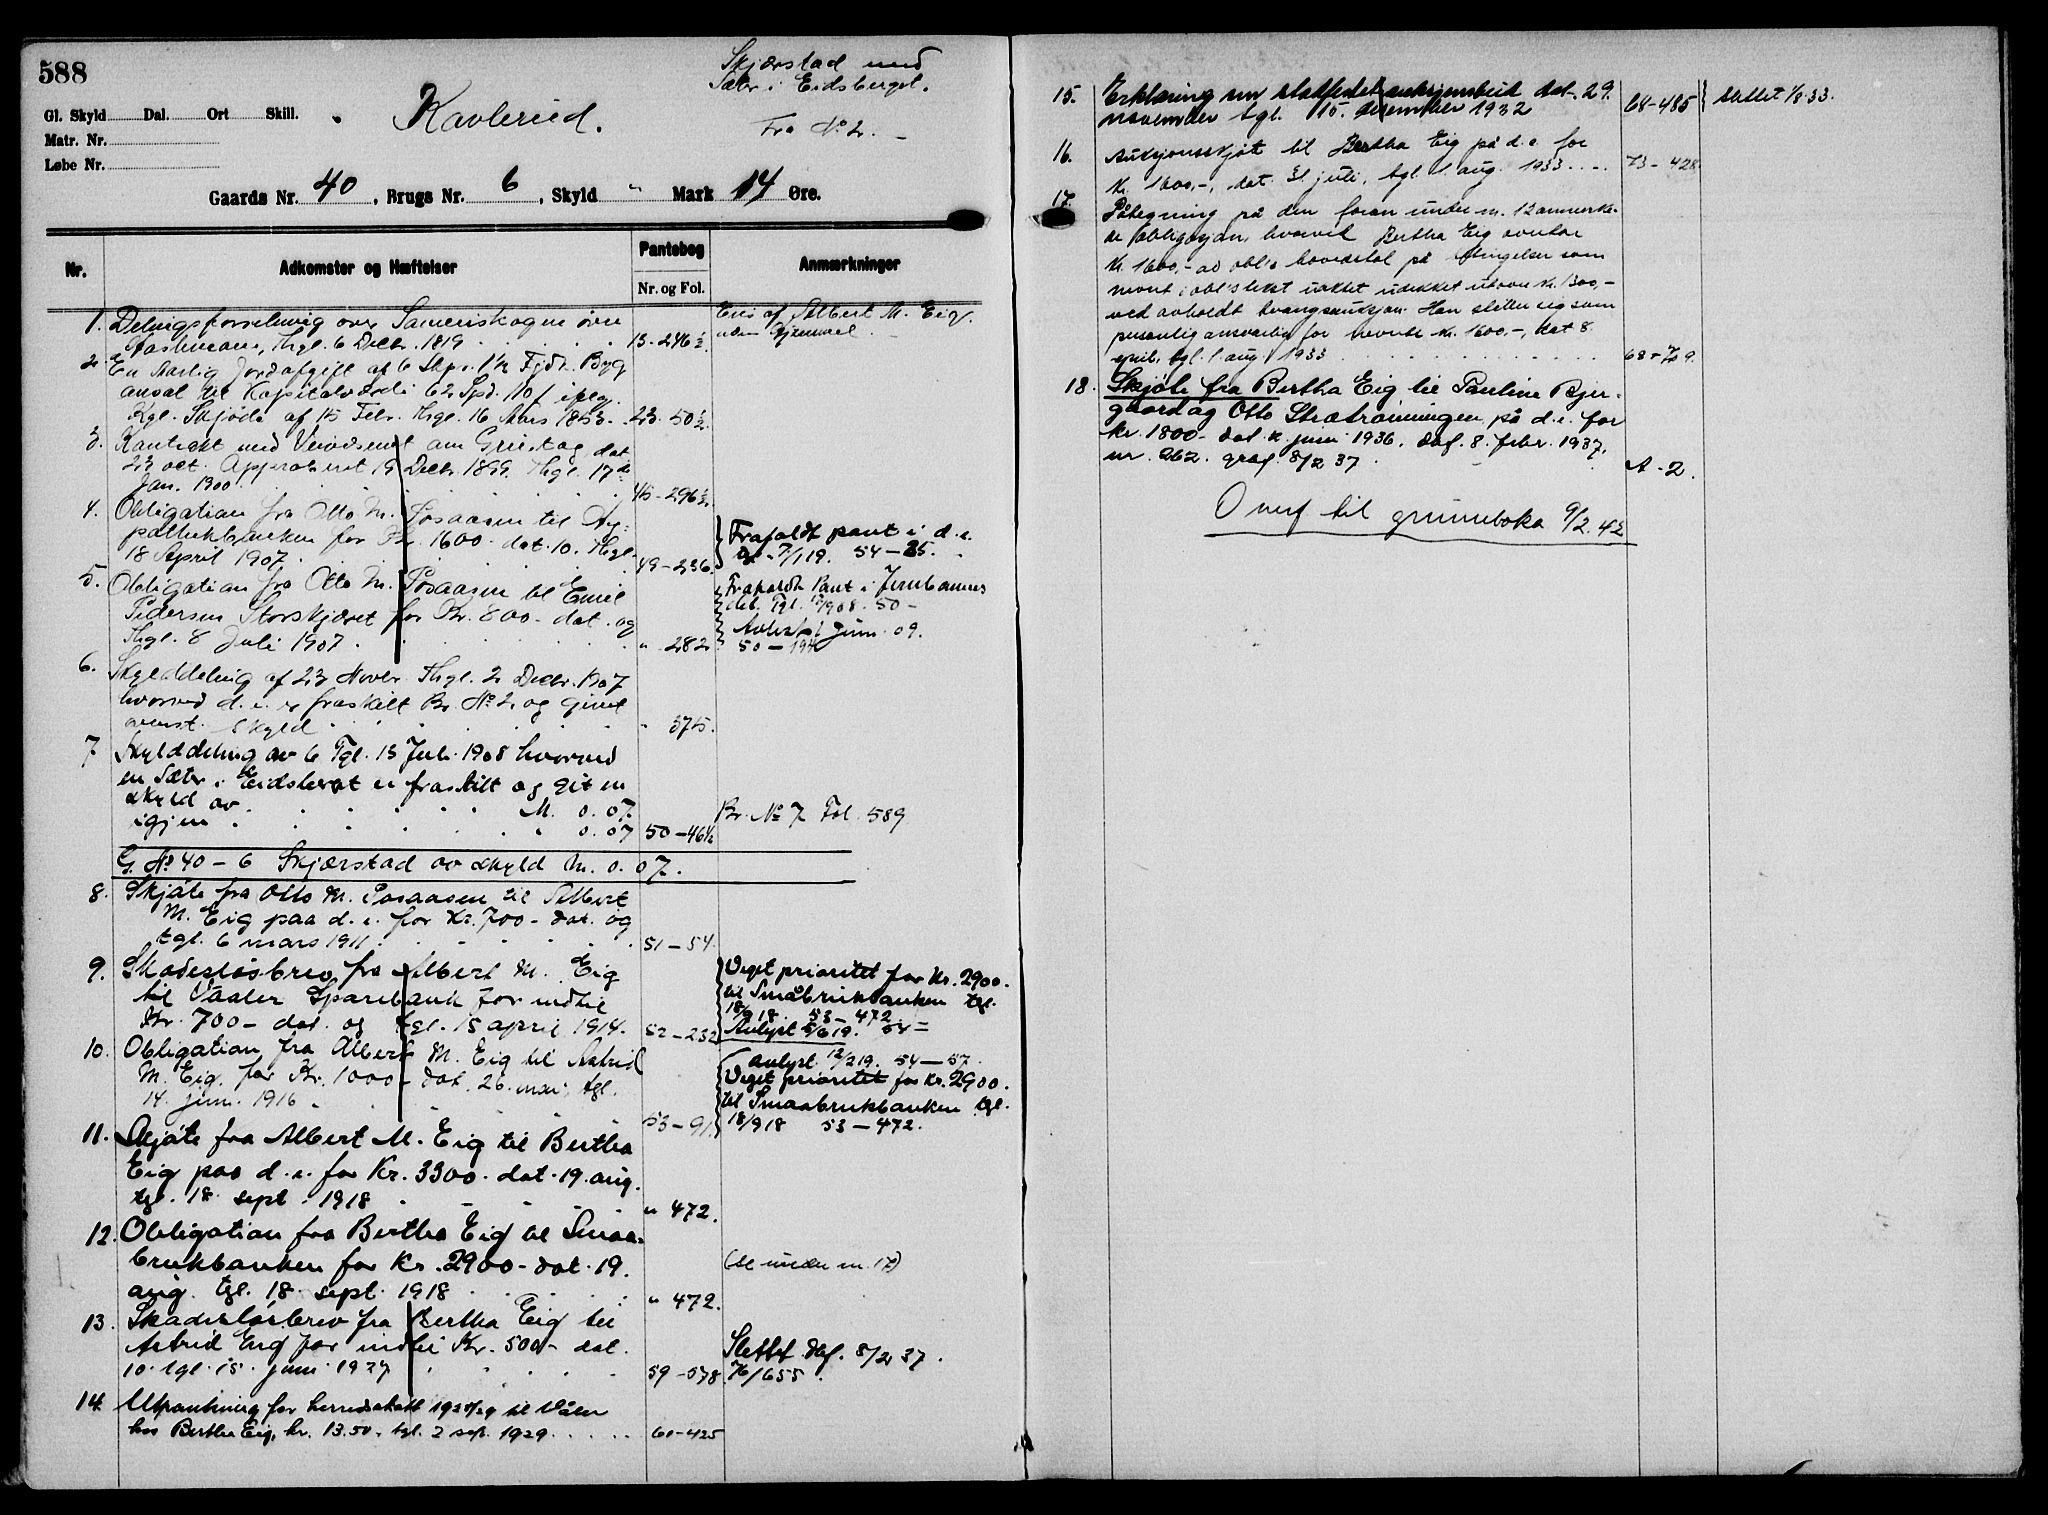 588
Skjærstad med
Sæter i Eidsberget.
Gl. Skyld Dal. Ort Skill.
Kavlerud.
Matr. Nr.
Fra No 2. –
Løbe Nr.
Gaards Nr. 40, Brugs Nr. 6, Skyld " Mark 14 Øre.
Nr. Adkomster og Hæftelser Pantebog Anmærkninger
Nr. og Fol.
1. Delingsforretning over
Thgl. 6 Decbr. 1819 13-246½.
Eies af Albert M. Eig.
uden Hjemmel.
2. En Aarlig Jordafgift af 6 Skp. 1½ Fjdk. Byg
ansat til Kapitalværdi 62 Spd. 110 f iflg.
Kgl. Skjøde af 15 Febr. Thgl. 16 Mars 1853. 23-50½.
3. Kontrakt med om Grustag dat.
23 oct. Approberet 19 Decbr. 1899 Thgl. 17de
Jan. 1900 45-296½.
4. Obligation fra Otto M. Posaasen til Hy-
pothekbanken for Kr. 1600- dat. 10. Thgl.
18 April 1907. 49-236.
Frafaldt pant i d.e.
7/1 19. 54-25.
5. Obligation fra Otto M. Posaasen til Emil
Pedersen Storskjæret for Kr. 800- dat. og
Thgl. 8 Juli 1907. " 282
Frafaldt Pant i Jernbanens
del. Tgl. 1908. 50-
Avlest Juni 09.
50-194
6. Skylddeling af 23 Novbr. Thgl. 2 Decbr. 1907
hvorved d.e. er fraskilt Br. No 2 og givet
ovenst. Skyld " 375.
7 Skylddeling av 6 Tgl. 15 Juli 1908 hvorved
en Sæter i Eidsberget er fraskilt og git en
skyld av M. 0.07.
igjen " 0.07 50-46½
Br. No 7 Fol. 589
G. No 40-6 Skjærstad av skyld M. 0.07.
8. Skjøte fra Otto M. Posaasen til Albert
M. Eig paa d.e. for Kr. 700- dat. og
tgl. 6 mars 1911. 51-54.
9. Skadesløsbrev fra Albert M. Eig
til Vaaler Sparebank for indtil
Kr. 700- dat. og tgl. 15 april 1914. 52-232
Veget prioritet for Kr. 2900.
til Småbrukbanken tgl.
18/9 18. 53-472.
Avlyst 5/6 19. 54-
10. Obligation fra Albert M. Eig til Astrid
M. Eig. for Kr. 1000- dat. 26. mai, tgl.
14. juni 1916. 53-91.
avlyst 12/2 19. 54-57.
Veget prioritet for Kr. 2900.
til Smaabrukbanken tgl.
18/9 18 53-472.
11. Skjøte fra Albert M. Eig til Bertha
Eig paa d.e. for Kr. 3300. dat. 19. aug.
tgl. 18. sept. 1918 " 472.
12. Obligation fra Bertha Eig til Smaa-
brukbanken for Kr. 2900- dat. 19.
aug. tgl. 18. sept. 1918 " 472.
(se under nr. 17)
13. Skadesløsbrev fra Bertha Eig til
Astrid Eig for indtil Kr. 500- dat.
10. tgl. 15. juni 1927 59-578
Slettet dbf. 8/2 37.
76/655.
14. Utpantning for herredsskatt 1928/29 til Våler
hos Bertha Eig, kr. 13.50, tgl. 2 sep. 1929. 60-425
15. Erklæring om stattfestet auksjonsbud dat. 29.
november tgl. 15. desember 1932 68-485
slettet 1/8.33.
16. Auksjonsskjøt til Bertha Eig på d.e. for
kr. 1600,-, dat. 31. juli, tgl. 1. aug. 1933 73-428
17. Påtegning på den foran under nr. 12 anmerke-
de obligasjon, hvorved Bertha Eig overtar
kr. 1600,- av obl.s hovedstol på betingelser som
nevnt i obl's tekst uaktet udekket utover kr. 1300,-
ved avholdt tvangsauksjon. Han stiller seg som
personlig ansvarlig for nevnte kr. 1600,-, dat. 8
april, tgl. 1. aug. 1933 68-709.
18. Skjøte fra Bertha Eig til Pauline Bjer-
gaard og Otto Strætrominngen på d.e. for
kr. 1800- dat. juni 1936, dbf. 8. febr. 1937.
nr. 262. graf. 8/2 37. A-2.
Overf til grunnboka 9/2.42